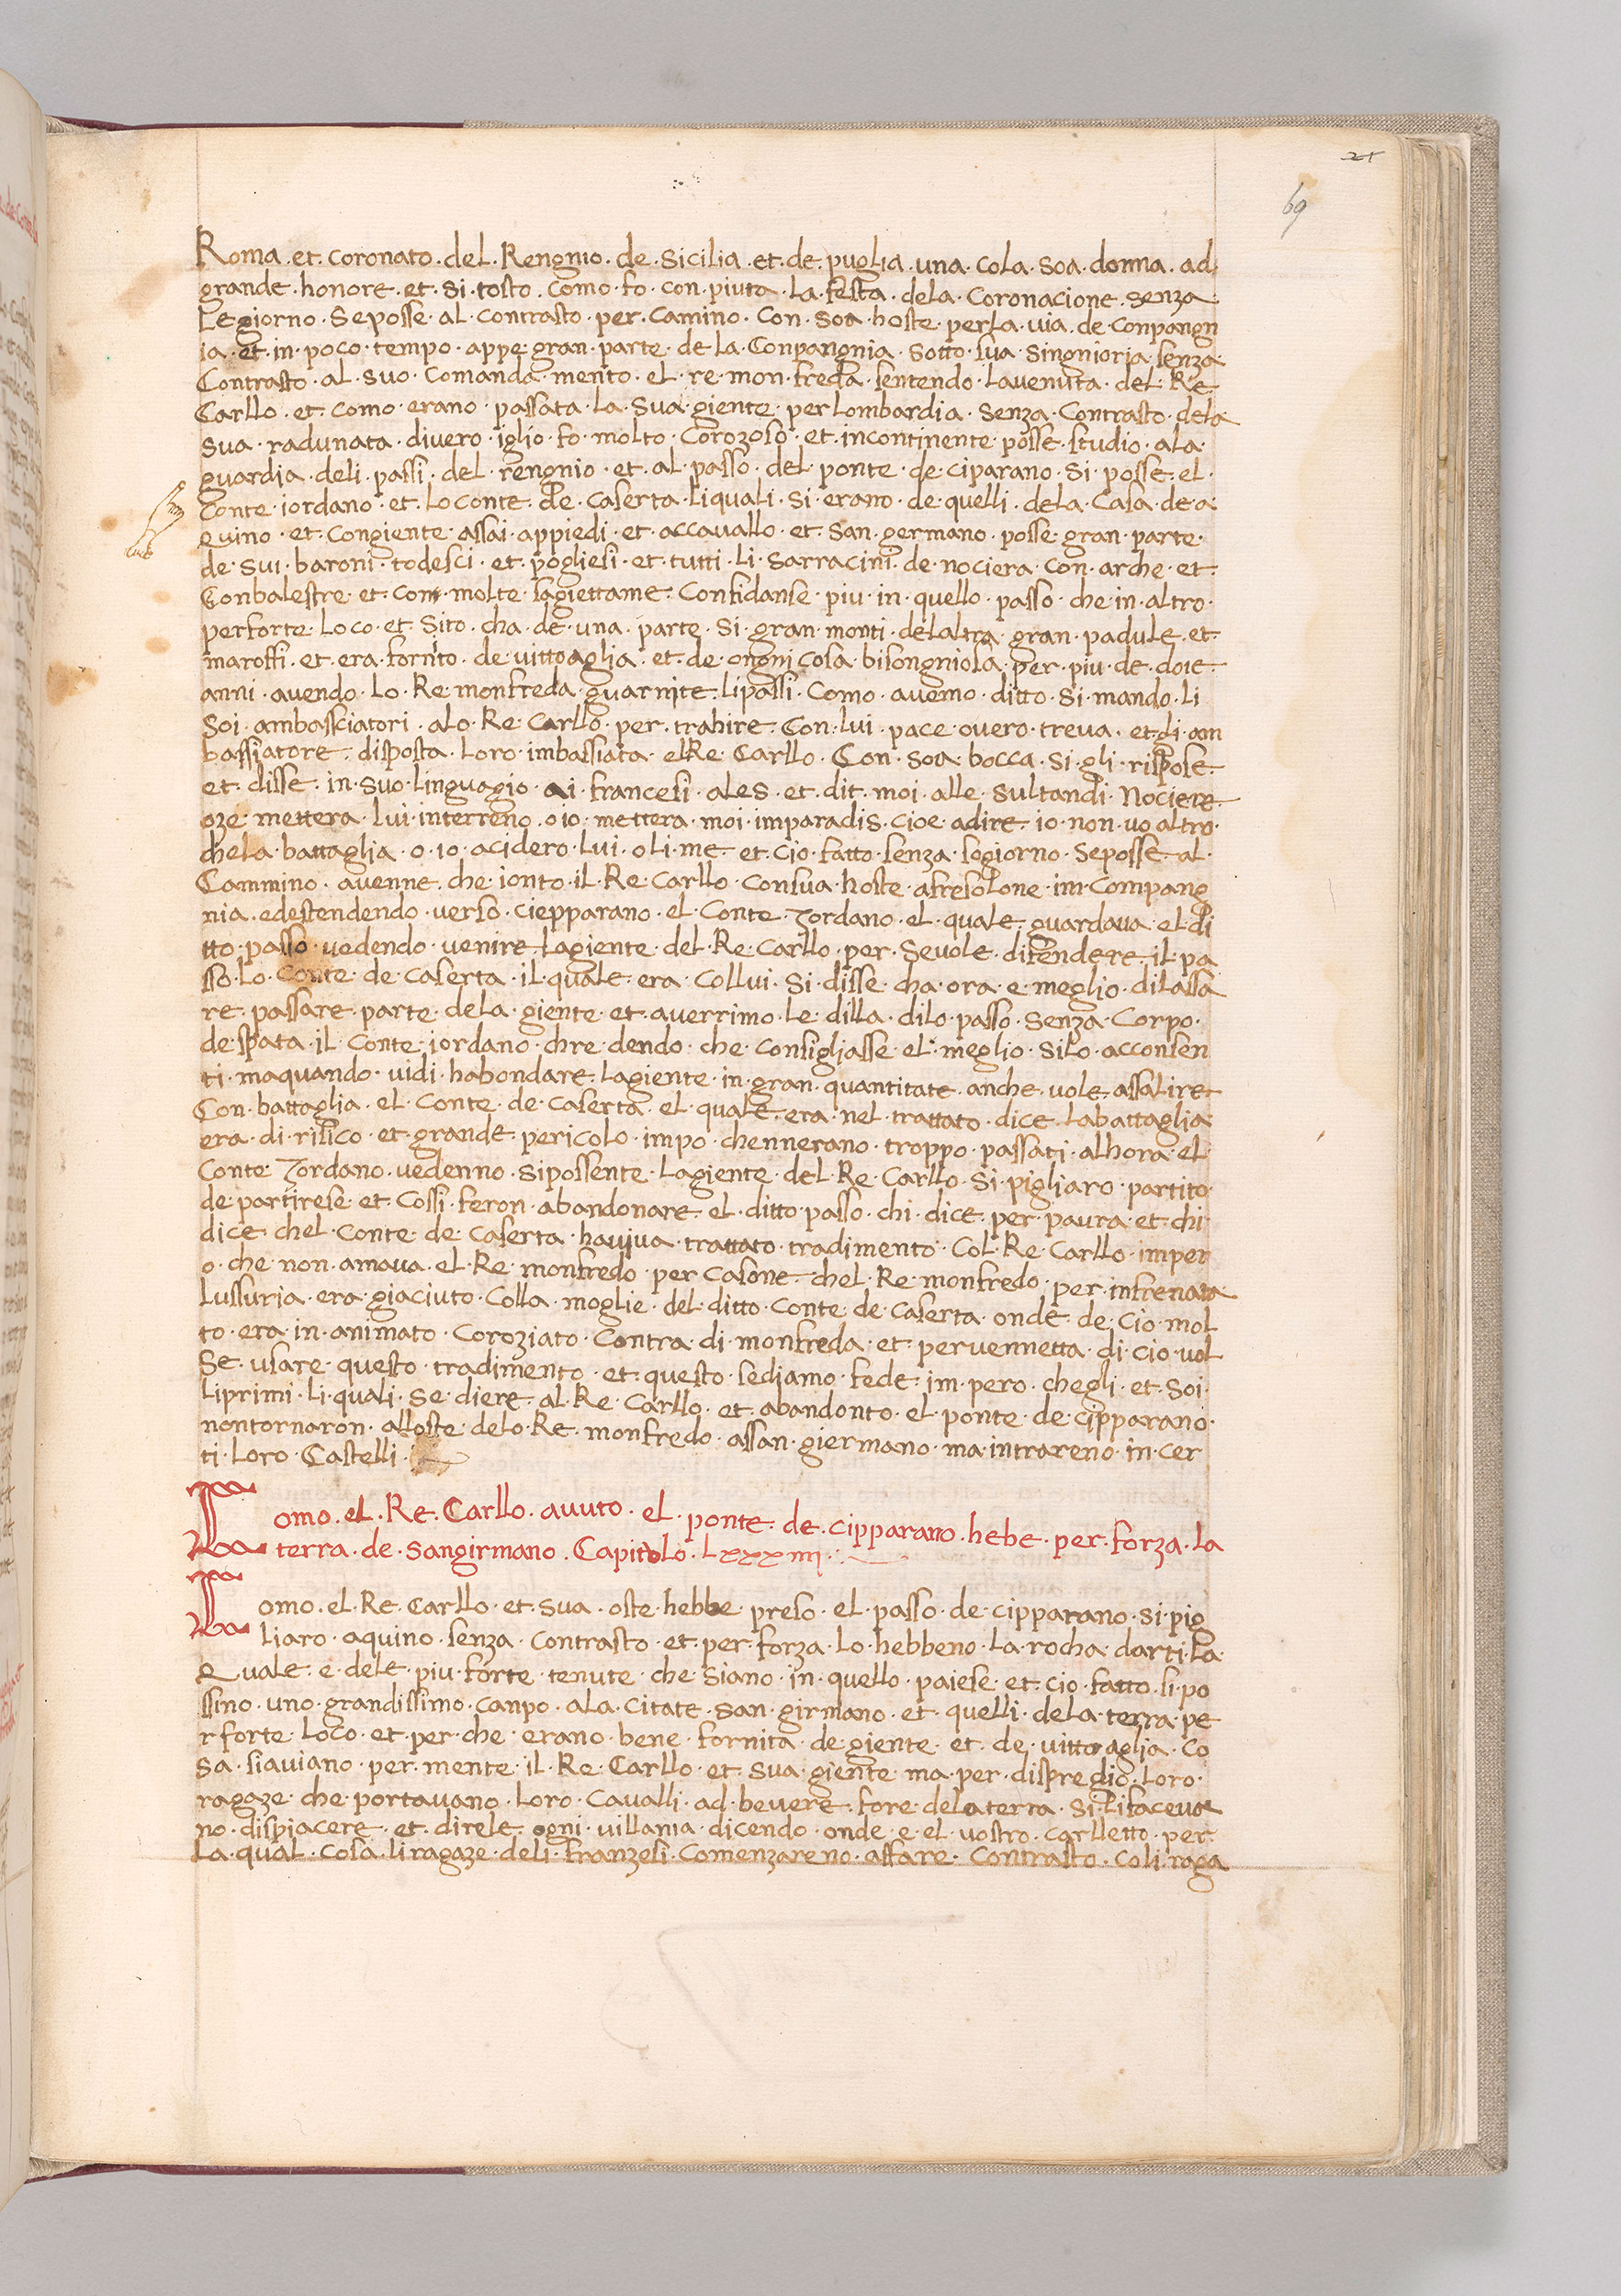 21
69
Roma . et . coronato . del . Rengnio . de . Sicilia . et . de . puglia . una . cola . soa . donna . ad
grande . honore . et . si . tosto . como . fo . con . piuta . la . festa . dela . Coronacione . senza
Legiorno . Seposse . al . contrasto . per . Camino . Con . soa . hoste . perla . via . de . Conpangn
ia . et . in . poco . tempo . appe . gran . parte . de la . Conpangnia . sotto . sua . singnioria . senza
Contrasto . al . suo . Comanda . mento . el . re . mon . freda . sentendo . lavenuta . del . Re
Carllo . et . como . erano . passata . la . sua . giente . per Lombardia . senza . Contrasto . dela
sua . radunata . divero . iglio . fo . molto . Corozoso . et . incontinente . posse . studio . ala
guardia . deli . passi . del . rengnio . et . al . passo . del . ponte . de . ciparano . si . posse . el .
Conte . iordano . et . lo conte . de . Caserta . liquali . si . erano . de . quelli . dela . Casa . de . a
quino . et . Congiente . assai . appiedi . et . accavallo . et . san . germano . posse . gran . parte .
de . sui . baroni . todesci . et . pogliesi . et . tutti . li . sarracini . de . nociera . con . arche . et .
Conbalestre . et . com . molte . sagiettame . Confidanse . piu . in . quello . passo . che in . altro .
perforte . Loco . et . sito . cha . de . una . parte . si . gran . monti . delaltra . gran . padule . et .
maroffi . et . era . fornito . de . vittoaglia . et . de . ongni cosa . bisongniosa . per . piu . de . doie .
anni . avendo . lo . Re . monfreda . guarnite . lipassi . Como . avemo . ditto . si . mando . li
Soi . ambassciatori . alo . Re . Carllo . per . trahire . Con . lui . pace . overo . treva . et . di . am
bassiatore . disposta . loro . imbassiata . elRe . Carllo . Con . soa . bocca . si . gli . rispose .
et . disse . in . suo . linguagio . ai . francesi . ales . et . dit . moi . alle . sultandi . Nociere
oze . mettera . lui . interreno . o io . mettera . moi . imparadis . cioe . adire . io . non . vo altro .
chela . battaglia . o . io . acidero . lui . o li . me . et . cio . fatto . senza . sogiorno . seposse . al .
Cammino . avenne . che . ionto . il . Re . Carllo . Consua . hoste . afresolone . im . Compang
nia . edestendendo . verso . ciepparano . el . Conte . Jordano . el . quale . guardava . el . di
tto . passo . vedendo . venire . lagiente . del . Re . Carllo . per . sevole . difendere . il . pa
sso . lo . Conte . de . Caserta . il . quale . era . Collui . si . disse . cha . ora . e . meglio . dilassa
re . passare . parte . dela . giente . et . averrimo . le . dilla . dilo . passo . senza . Corpo .
de . spata . il . Conte . iordano . chre . dendo . che . consigliasse . el . meglio . silo . acconsen
ti . maquando . vidi . habondare . lagiente . in . gran . quantitate . anche . vole . assalire
Con . battaglia . el . Conte . de . Caserta . el . quale . era . nel . trattato . dice . labattaglia
era . di . risico . et . grande . pericolo . impo . chennerano . troppo . passati . alhora . el
Conte . Jordano . vedenno . sipossente . lagiente . del . Re . Carllo . si . pigliaro . partito .
de . partirese . et . Cossi . feron . abandonare . el . ditto . passo . chi . dice . per . paura . et . chi
dice . chel . Conte . de . Caserta . haviva . trattato . tradimento . Col . Re . Carllo . imper
o . che . non . amava . el . Re . monfredo . per casone . chel . Re . monfredo . per . infrenata
lussuria . era . giaciuto . Colla . moglie . del . ditto . Conte . de . Caserta . onde . de . cio . mol
to . era . in . animato . Coroziato . Contra . di . monfreda . et . pervennetta . di . cio . vol
se . usare . questo . tradimento . et . questo . sediamo . fede . im . pero . chegli . et . soi .
liprimi . li . quali . se . diere . al . Re . Carllo . et . abandonto . el . ponte . de . cipparano .
nontornaron . alloste . delo . Re . monfredo . assan . giermano . ma . intrareno . in . cer
ti . loro . Castelli .
omo . el . Re . Carllo . avuto . el . ponte . de . cipparano . hebe . per . forza . la
terra . de . sangirmano . Capitolo . Lxxxiiii .
omo . el . Re . Carllo . et . sua . oste . hebbe . preso . el . passo . de . cipparano . si . pig
liaro . aquino . senza . contrasto . et . per . forza . lo . hebbeno . la . rocha . darti . la
Quale . e . dele . piu . forte . tenute . che . siano . in . quello . paiese . et . cio . fatto . si . po
ssino . uno . grandissimo . canpo . ala . citate . san . girmano . et . quelli . dela . terra . pe
r forte . loco . et . per . che . erano . bene . fornita . de giente . et . de . vittoaglia . co
sa . siaviano . per . mente . il . Re . Carllo . et . sua . giente . ma . per . dispregio . loro .
ragaze . che . portavano . loro . Cavalli . ad . bevere . fore . delaterra . si . lifaceva
no . dispiacere . et . direle . ogni . villania . dicendo . onde . e . el . vostro . carlletto . per
la . qual . cosa . liragaze . deli . franzesi . Comenzareno . affare . Contrasto . coli . raga